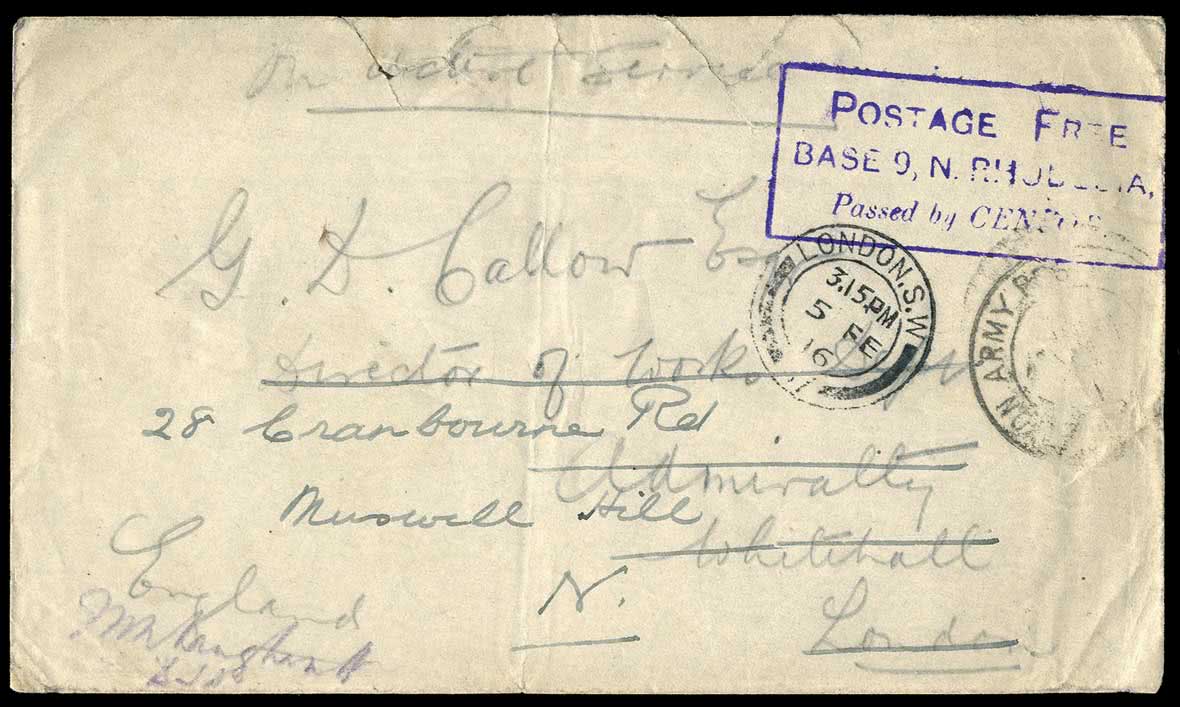 On Active Service
POSTAGE FREE
BASE 9, N. RHODESIA,
Passed by CENSOR
LONDON. S.W
3.15PM
5 FE
16
ARMY
G. D. Callow Esq
Director of Works Dept
28 Cranbourne Rd
Admiralty
Muswell Hill
Whitehall
N.
London
England